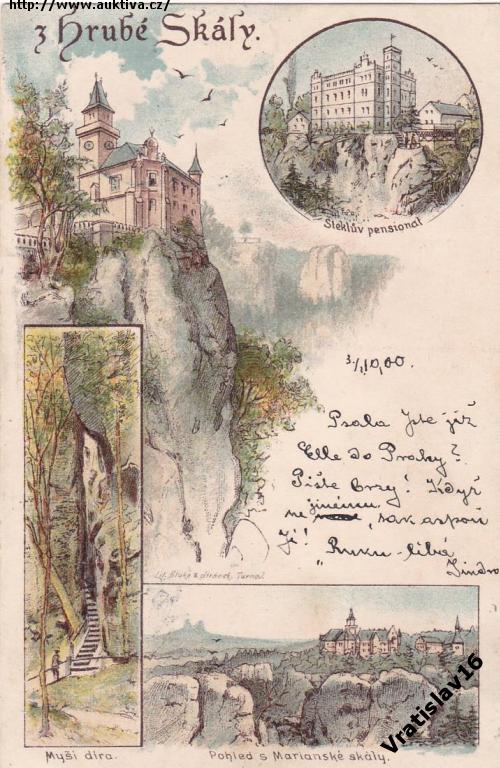 http://www.auktiva.cz/
z Hrubé Skály.
Šteklův pensionat
3/10,00.
Psala jste již
Elle do Prahy?
Pište brzy! Když
ne jinému, tak aspoň
jí! Ruku líbá
Jindra
Lit. Sluke z píránek, Turnov.
Myší díra.
Pohled s Marianské skály.
Vratislav16